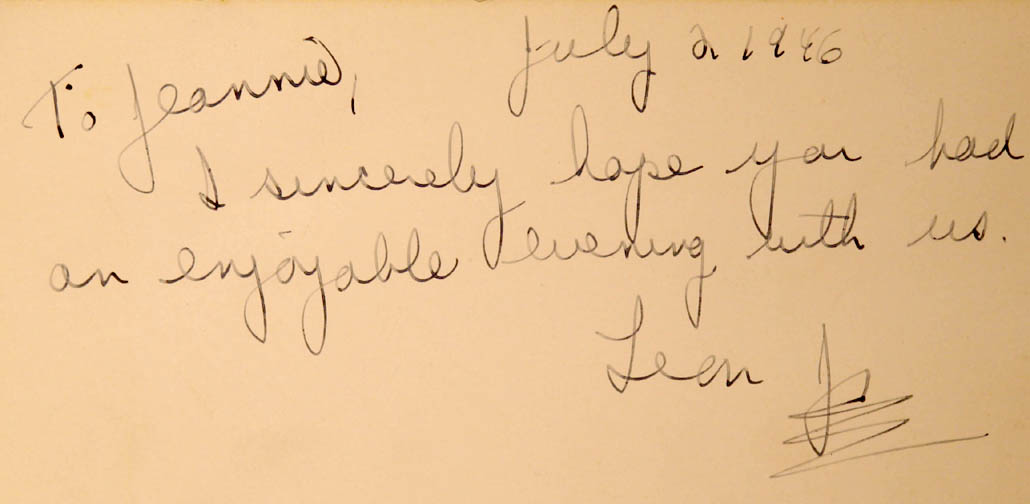 To Jeannie, July 2, 1946
I sincerely hope you had
an enjoyable evening with us.
Leon Jr